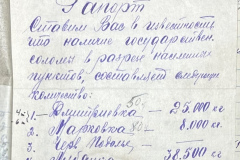 Рапорт
Ставим Вас в известность
что наличие государствен.
соломы в разрезе населенных
пунктов, составляет следующее
количество:
1. Дмитриевка 50 - 25.000 кг
2. Марковка 80 - 8.000 кг.
3. Черв. Подолье,
38.500 кг